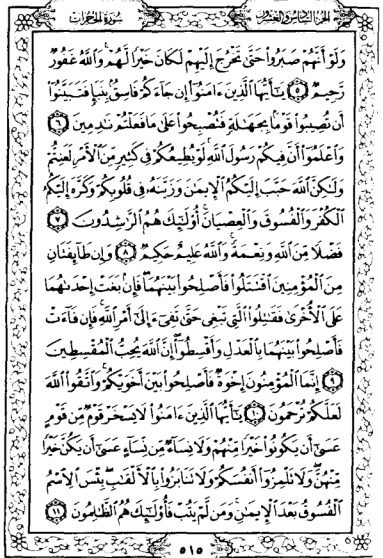 الجزء السادس والعشرون سورة الحجرات
وَلَوْ أَنَّهُمْ صَبَرُوا حَتَّىٰ تَخْرُجَ إِلَيْهِمْ لَكَانَ خَيْرًا لَّهُمْ وَاللَّهُ غَفُورٌ
رَّحِيمٌ ٥ يَٰٓأَيُّهَا الَّذِينَ ءَامَنُوٓا إِن جَآءَكُمْ فَاسِقٌۢ بِنَبَإٍ فَتَبَيَّنُوٓا
أَن تُصِيبُوا قَوْمًۢا بِجَهَٰلَةٍ فَتُصْبِحُوا عَلَىٰ مَا فَعَلْتُمْ نَٰدِمِينَ ٦
وَاعْلَمُوٓا أَنَّ فِيكُمْ رَسُولَ اللَّهِ لَوْ يُطِيعُكُمْ فِى كَثِيرٍ مِّنَ الْأَمْرِ لَعَنِتُّمْ
وَلَٰكِنَّ اللَّهَ حَبَّبَ إِلَيْكُمُ الْإِيمَٰنَ وَزَيَّنَهُۥ فِى قُلُوبِكُمْ وَكَرَّهَ إِلَيْكُمُ
الْكُفْرَ وَالْفُسُوقَ وَالْعِصْيَانَ أُولَٰٓئِكَ هُمُ الرَّٰشِدُونَ ٧
فَضْلًا مِّنَ اللَّهِ وَنِعْمَةً وَاللَّهُ عَلِيمٌ حَكِيمٌ ٨ وَإِن طَآئِفَتَانِ
مِنَ الْمُؤْمِنِينَ اقْتَتَلُوا فَأَصْلِحُوا بَيْنَهُمَا فَإِنۢ بَغَتْ إِحْدَىٰهُمَا
عَلَى الْأُخْرَىٰ فَقَٰتِلُوا الَّتِى تَبْغِى حَتَّىٰ تَفِىٓءَ إِلَىٰٓ أَمْرِ اللَّهِ فَإِن فَآءَتْ
فَأَصْلِحُوا بَيْنَهُمَا بِالْعَدْلِ وَأَقْسِطُوٓا إِنَّ اللَّهَ يُحِبُّ الْمُقْسِطِينَ
٩ إِنَّمَا الْمُؤْمِنُونَ إِخْوَةٌ فَأَصْلِحُوا بَيْنَ أَخَوَيْكُمْ وَاتَّقُوا اللَّهَ
لَعَلَّكُمْ تُرْحَمُونَ ١٠ يَٰٓأَيُّهَا الَّذِينَ ءَامَنُوا لَا يَسْخَرْ قَوْمٌ مِّن قَوْمٍ
عَسَىٰٓ أَن يَكُونُوا خَيْرًا مِّنْهُمْ وَلَا نِسَآءٌ مِّن نِّسَآءٍ عَسَىٰٓ أَن يَكُنَّ خَيْرًا
مِّنْهُنَّ وَلَا تَلْمِزُوٓا أَنفُسَكُمْ وَلَا تَنَابَزُوا بِالْأَلْقَٰبِ بِئْسَ الِاسْمُ
الْفُسُوقُ بَعْدَ الْإِيمَٰنِ وَمَن لَّمْ يَتُبْ فَأُولَٰٓئِكَ هُمُ الظَّٰلِمُونَ ١١
٥١٥